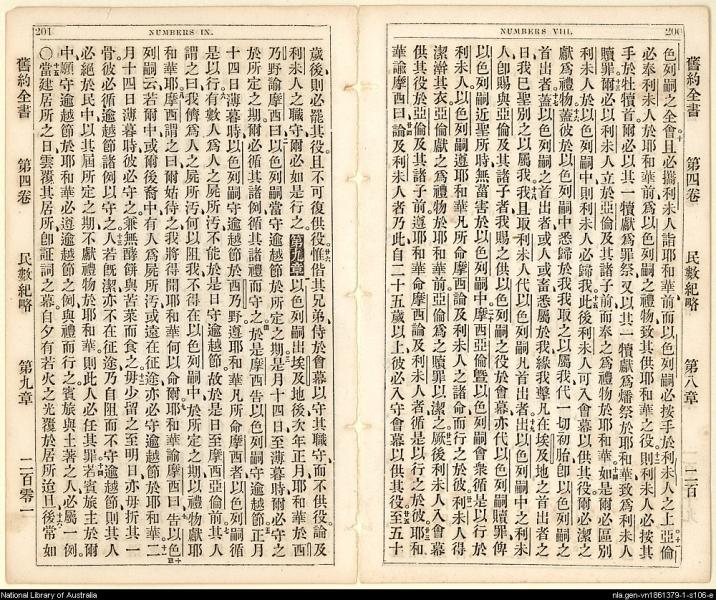 NUMBERS VIII.
200
舊約全書 第四卷 民數紀略 第八章 二百
色列嗣之全會且必攜利未人詣耶和華前而以色列嗣必按手於利未人之上亞倫
必奉利未人於耶和華前爲以色列嗣之禮物致其供耶和華之役則利未人必按其
手於牡犢首爾必以其一犢獻爲罪祭又以其一犢獻爲燔祭於耶和華致爲利未人
贖罪爾必以利未人立於亞倫及其諸子前而奉之爲禮物於耶和華如是爾必區別
利未人於以色列嗣中則利未人必歸我此後利未人可入會幕以供其役爾必潔之
獻爲禮物蓋彼於以色列嗣中悉歸於我我取之以屬我代一切初胎卽以色列嗣之
首出者蓋以色列嗣之首出者或人或畜悉屬於我緣我擊凡在埃及地之首出者之
日我已聖別之以屬我我且取利未人代以色列嗣凡首出者出以色列嗣中之利未
人卽賜與亞倫及其諸子者我賜之供以色列嗣之役於會幕亦代以色列嗣贖罪俾
以色列嗣近聖所時無菑害於以色列嗣中摩西亞倫曁以色列嗣會衆循是以行於
利未人以色列嗣遵耶和華凡所命摩西論及利未人之諸命而行之於彼利未人得
潔澣其衣亞倫獻之爲禮物於耶和華前亞倫爲之贖罪以潔之厥後利未人入會幕
供其役於亞倫及其諸子前遵耶和華命摩西論及利未人者循是以行之於彼耶和
華諭摩西曰論及利未人者乃此自二十五歲以上彼必入守會幕以供其役至五十
NUMBERS IX.
201
歲後則必罷其役且不可復供役惟偕其兄弟侍於會幕以守其職守而不供役論及
利未人之職守爾必如是行之第九章以色列嗣出埃及地後次年正月耶和華於西
乃野諭摩西曰以色列嗣當守逾越節於所定之期是月十四日至薄暮時爾必守之
於所定之期爾必循其諸例循其諸禮而守之於是摩西告以色列嗣守逾越節正月
十四日薄暮時以色列嗣守逾越節於西乃野遵耶和華凡所命摩西者以色列嗣循
是以行有數人爲人之屍所汚不能於是日守逾越節故於是日至摩西亞倫前其人
謂之曰我儕爲人之屍所汚何以阻我不得在以色列嗣中於所定之期以禮物獻耶
和華耶摩西謂之曰爾始待之我將得聞耶和華何以命爾耶和華諭摩西曰告以色
列嗣云若爾中或爾後裔中有人爲屍所汚或遠在征途亦必守逾越節於耶和華二
月十四日薄暮時彼必守之兼無酵餅與苦菜而食之毋少留之至明日亦毋折其一
骨彼必循逾越節諸例以守之人若旣潔亦不在征途乃自阻而不守逾越節則其人
必絕於民中以其屆所定之期不獻禮物於耶和華則此人必任其罪若賓旅主於爾
中願守逾越節於耶和華必遵逾越節之例與禮而行之賓旅與土著之人必屬一例
〇當建居所之日雲覆其居所卽証詞之幕自夕有若火之光覆於居所迨旦後常如
舊約全書 第四卷 民數紀略 第九章 二百零一
National Library of Australia
nla.gen-vn1861379-1-s106-e